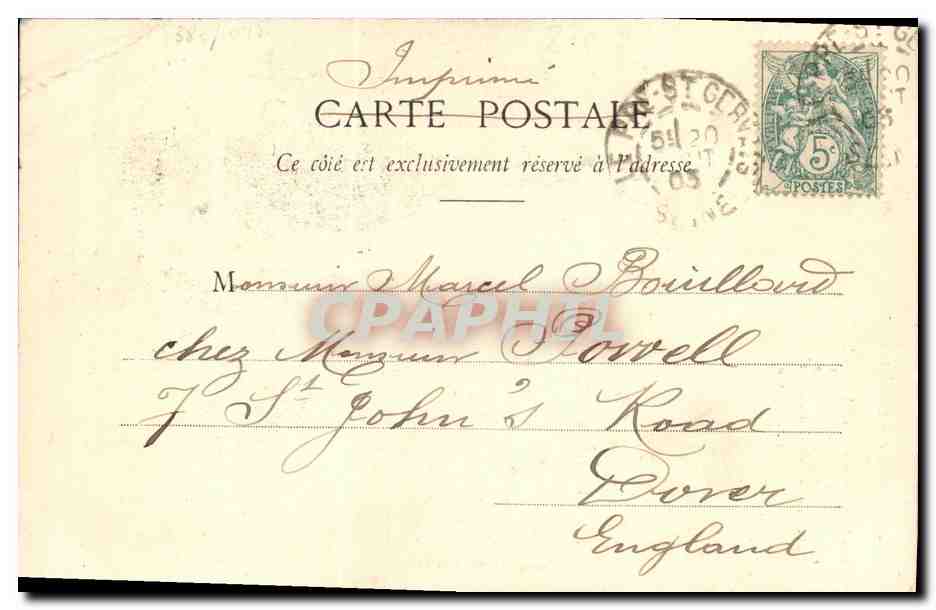 Imprimé
CARTE POSTALE
Ce côté est exclusivement réservé à l'adresse
5c
POSTES
20
03
Monsieur Marcel Bouillard
CPAPHIL
chez Monsieur Powell
7 St John's Road
Dover
England